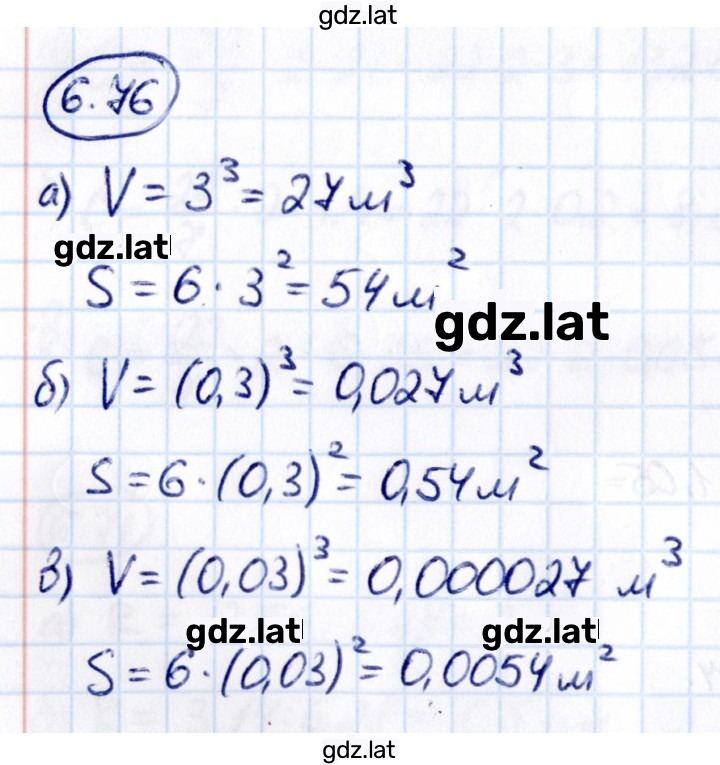 gdz.lat
6.76
а) V = 3³ = 27 м³
gdz.lat
S = 6 · 3² = 54 м²
gdz.lat
б) V = (0,3)³ = 0,027 м³
S = 6 · (0,3)² = 0,54 м²
в) V = (0,03)³ = 0,000027 м³
gdz.lat gdz.lat
S = 6 · (0,03)² = 0,0054 м²
gdz.lat